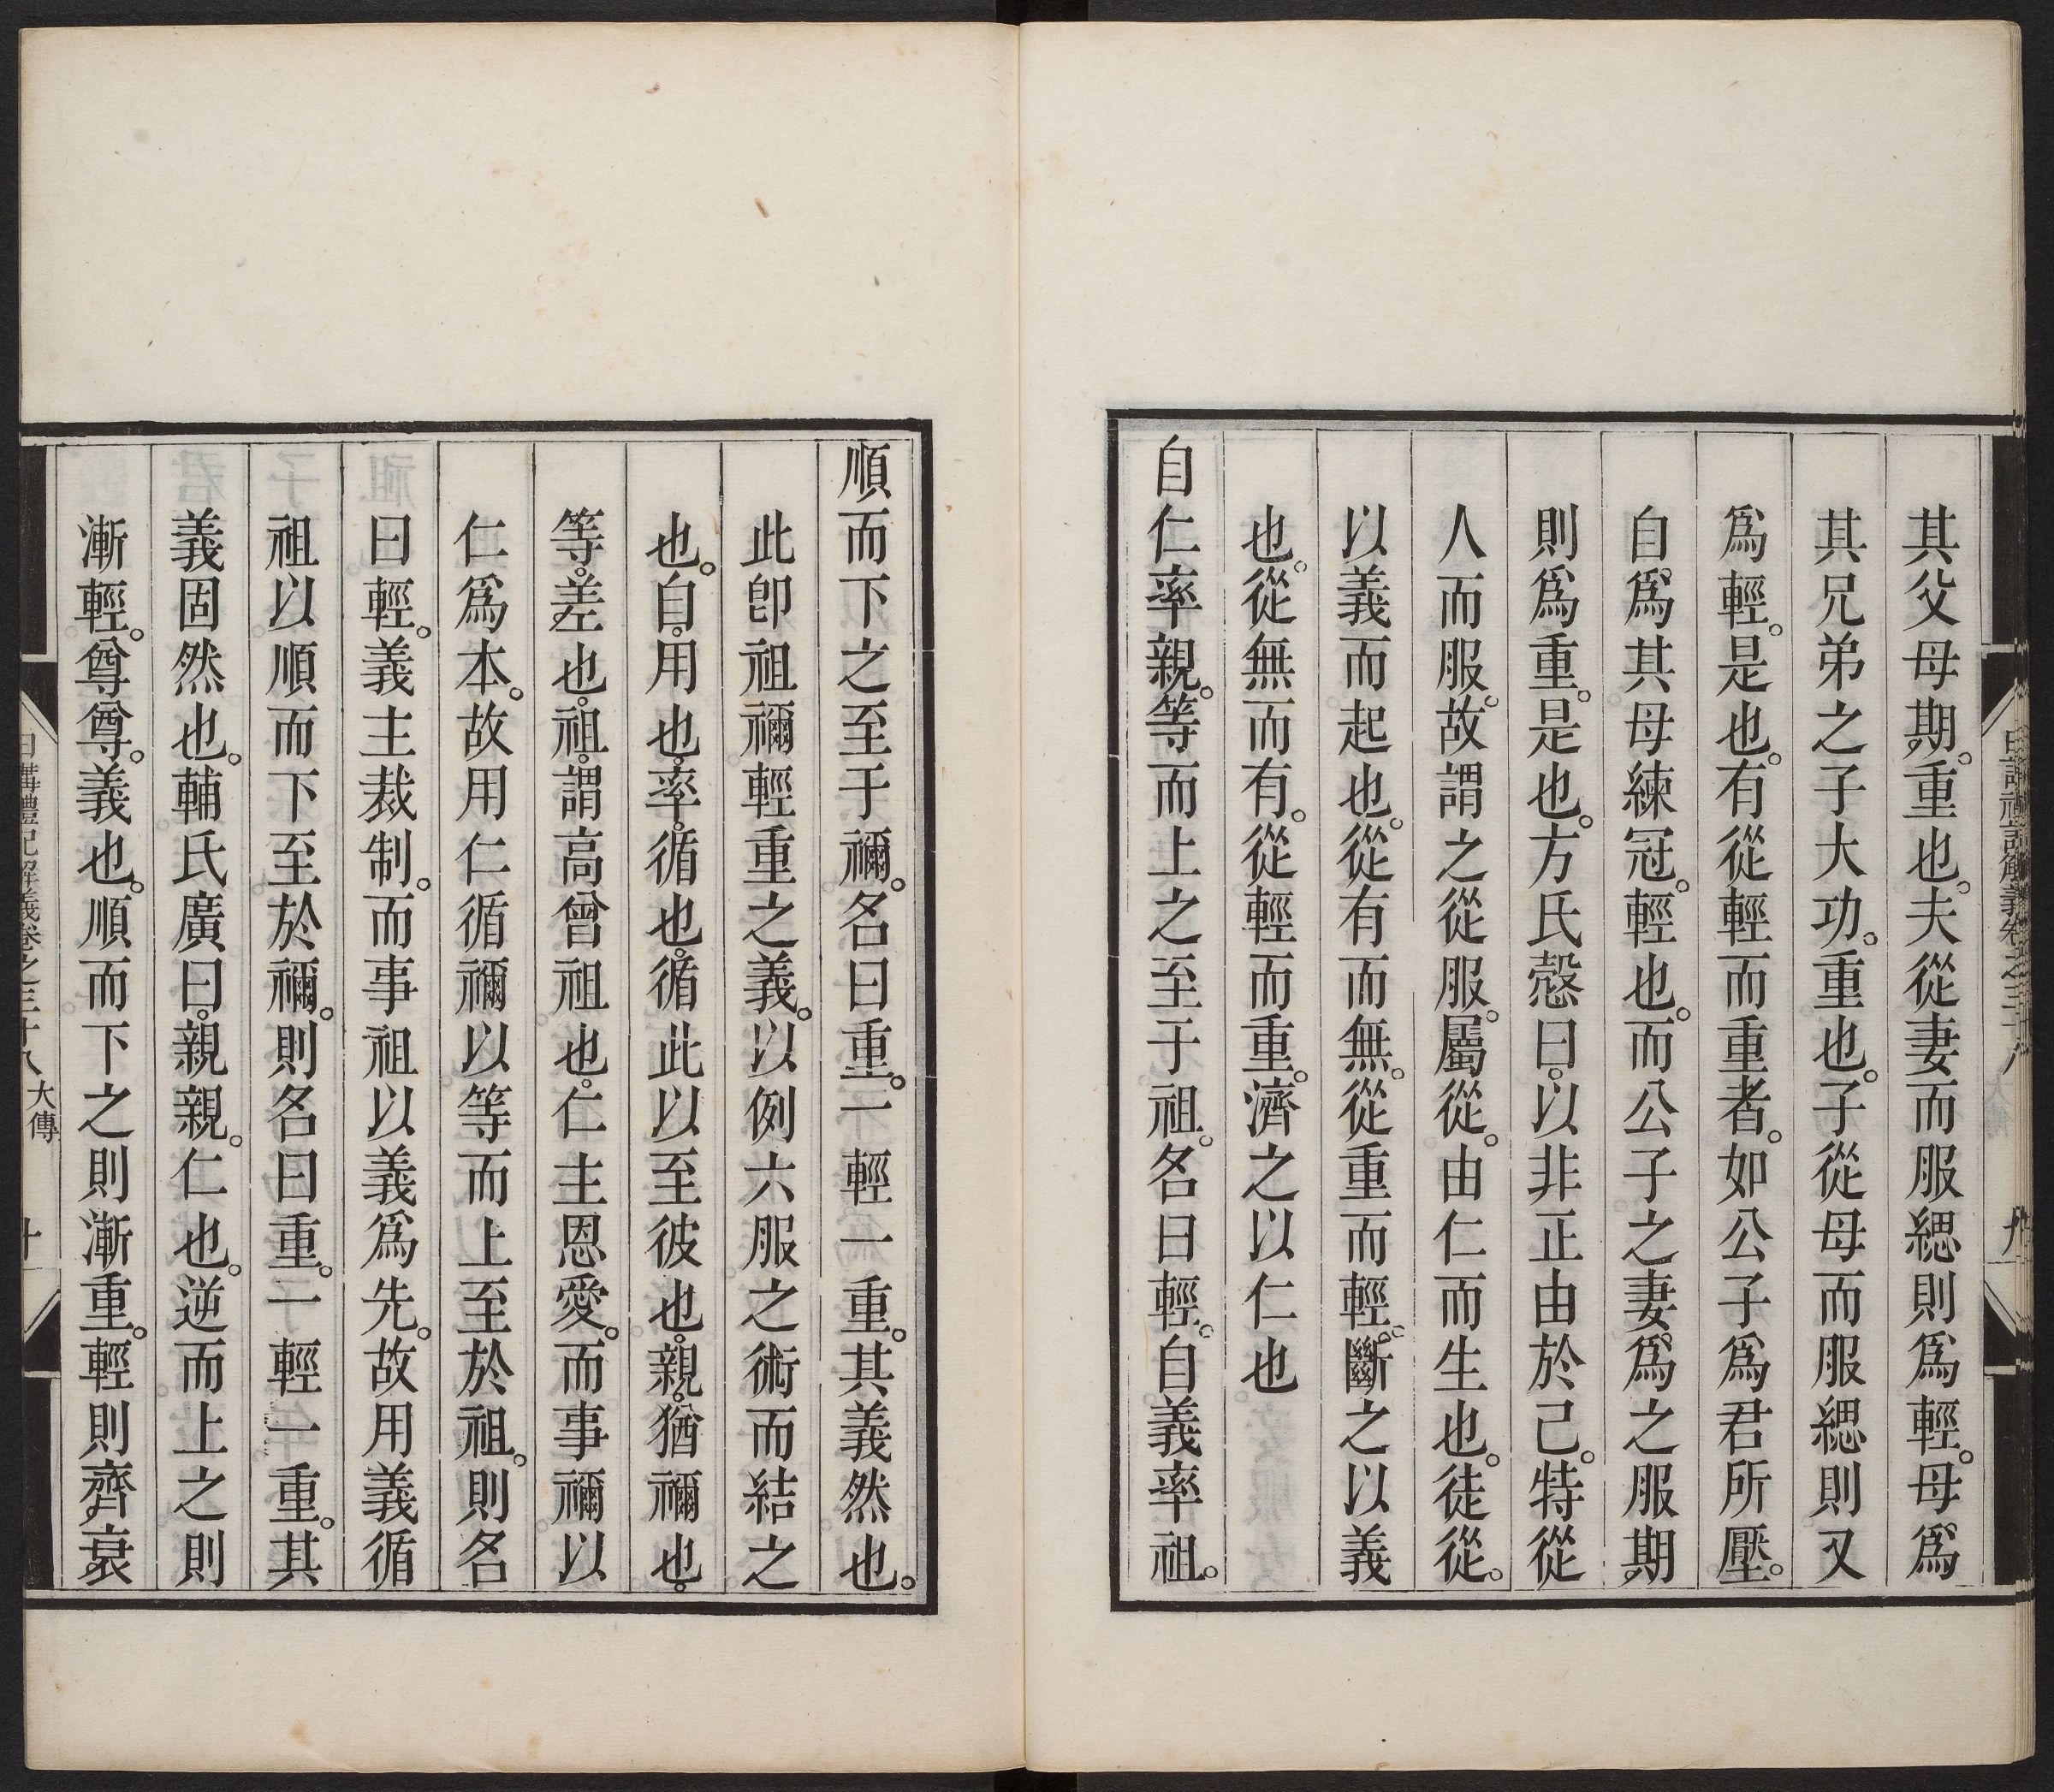 其父母期。重也。夫從妻而服緦則爲輕。母爲
其兄弟之子大功。重也。子從母而服緦則又
爲輕。是也。有從輕而重者。如公子爲君所壓。
自爲其母練冠。輕也。而公子之妻爲之服期
則爲重。是也。方氏慤曰。以非正由於己。特從
人而服。故謂之從服。屬從。由仁而生也。徒從。
以義而起也。從有而無。從重而輕。斷之以義
也。從無而有。從輕而重。濟之以仁也
自仁率親。等而上之至于祖。名曰輕。自義率祖。
順而下之至于禰。名曰重。一輕一重。其義然也。
此卽祖禰輕重之義。以例六服之術而結之
也。自。用也。率。循也。循此以至彼也。親。猶禰也。
等。差也。祖。謂高曾祖也。仁主恩愛。而事禰以
仁爲本。故用仁循禰以等而上至於祖。則名
曰輕。義主裁制。而事祖以義爲先。故用義循
祖以順而下至於禰。則名曰重。一輕一重。其
義固然也。輔氏廣曰。親親。仁也。逆而上之則
漸輕。尊尊。義也。順而下之則漸重。輕則齊衰
日講禮記解義卷之三十八 大傳 十